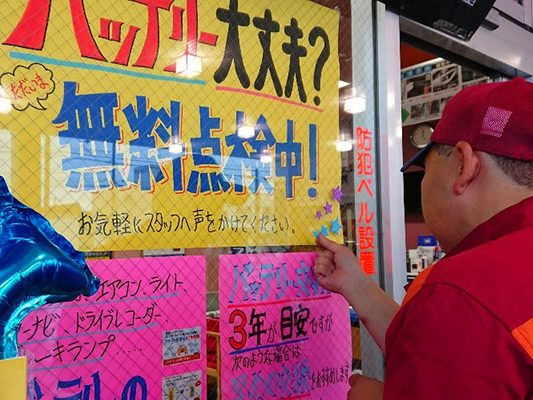 バッテリー大丈夫?
ただいま
無料点検中!
お気軽にスタッフへ声をかけてください。
防犯ベル設置
エアコン、ライト
ナビ、ドライブレコーダー
ーキランプ......
バッテリー
3年が目安ですが
次のような場合は
をおすすめします